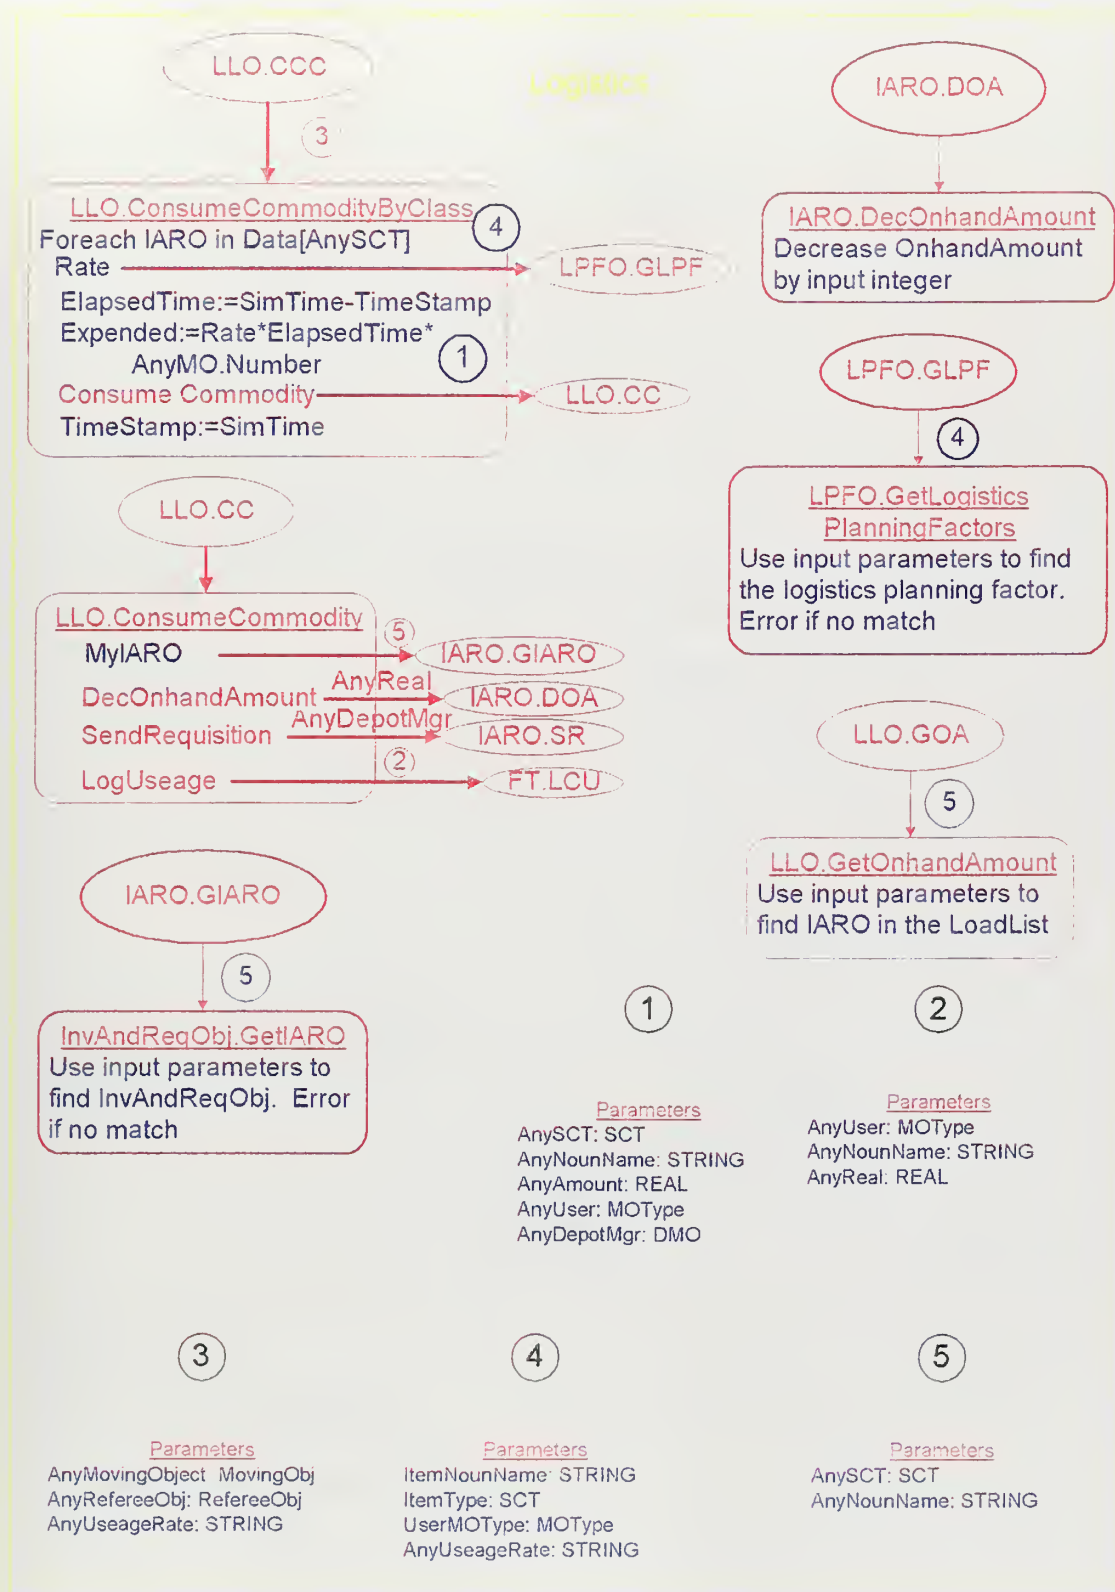 Logistics
LLO.CCC
3
LLO.ConsumeCommodityByClass
4
Foreach IARO in Data[AnySCT]
Rate
LPFO.GLPF
ElapsedTime:=SimTime-TimeStamp
Expended:=Rate*ElapsedTime*
AnyMO.Number
1
Consume Commodity
LLO.CC
TimeStamp:=SimTime
IARO.DOA
IARO.DecOnhandAmount
Decrease OnhandAmount
by input integer
LPFO.GLPF
4
LPFO.GetLogistics
PlanningFactors
Use input parameters to find
the logistics planning factor.
Error if no match
LLO.CC
LLO.ConsumeCommodity
5
MyIARO
IARO.GIARO
DecOnhandAmount
AnyReal
IARO.DOA
SendRequisition
AnyDepotMgr
IARO.SR
2
LogUseage
FT.LCU
LLO.GOA
5
LLO.GetOnhandAmount
Use input parameters to
find IARO in the LoadList
IARO.GIARO
5
InvAndReqObj.GetIARO
Use input parameters to
find InvAndReqObj. Error
if no match
1
Parameters
AnySCT: SCT
AnyNounName: STRING
AnyAmount: REAL
AnyUser: MOType
AnyDepotMgr: DMO
2
Parameters
AnyUser: MOType
AnyNounName: STRING
AnyReal: REAL
3
Parameters
AnyMovingObject MovingObj
AnyRefereeObj: RefereeObj
AnyUseageRate: STRING
4
Parameters
ItemNounName: STRING
ItemType: SCT
UserMOType: MOType
AnyUseageRate: STRING
5
Parameters
AnySCT: SCT
AnyNounName: STRING